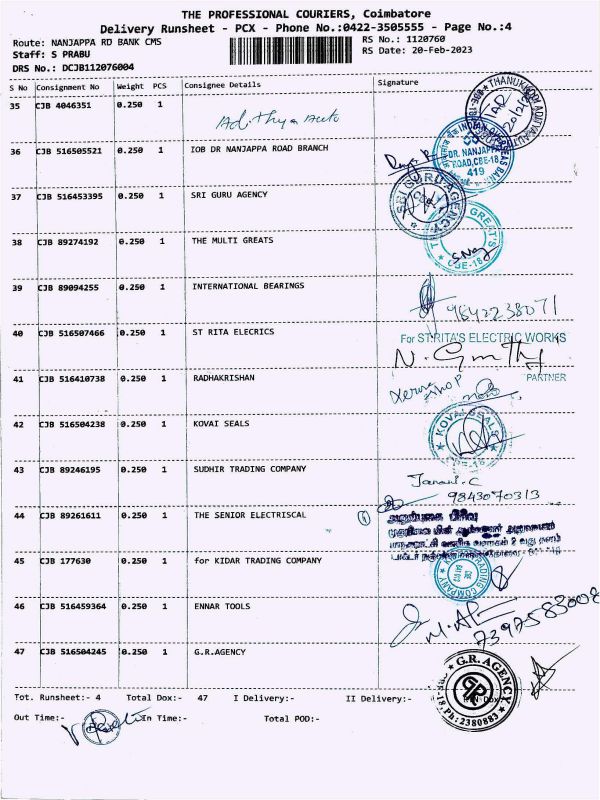 THE PROFESSIONAL COURIERS, Coimbatore
Delivery Runsheet - PCX - Phone No.:0422-3505555 - Page No.:4
Route: NANJAPPA RD BANK CMS RS No.: 1120760
Staff: S PRABU RS Date: 20-Feb-2023
DRS No.: DCJB112076004
S No Consignment No Weight PCS Consignee Details Signature
35 CJB 4046351 0.250 1 Adithya Auto
36 CJB 516505521 0.250 1 IOB DR NANJAPPA ROAD BRANCH
INDIAN OVERSEAS BANK
DR. NANJAPPA
ROAD, CBE-18
419
37 CJB 516453395 0.250 1 SRI GURU AGENCY
SRI GURU AGENCY
38 CJB 89274192 0.250 1 THE MULTI GREATS
GREAT'S
CBE-18
39 CJB 89094255 0.250 1 INTERNATIONAL BEARINGS
9842238071
40 CJB 516507466 0.250 1 ST RITA ELECRICS For ST.RITA'S ELECTRIC WORKS
PARTNER
41 CJB 516410738 0.250 1 RADHAKRISHAN
42 CJB 516504238 0.250 1 KOVAI SEALS
KOVAI SEALS
CBE-18
43 CJB 89246195 0.250 1 SUDHIR TRADING COMPANY
9843070313
44 CJB 89261611 0.250 1 THE SENIOR ELECTRISCAL
45 CJB 177630 0.250 1 for KIDAR TRADING COMPANY
TRADING COMPANY
46 CJB 516459364 0.250 1 ENNAR TOOLS
7397583008
47 CJB 516504245 0.250 1 G.R.AGENCY
G.R.AGENCY
Ph: 2380883
Tot. Runsheet:- 4 Total Dox:- 47 I Delivery:- II Delivery:- RTN Dox:-
Out Time:- In Time:- Total POD:-